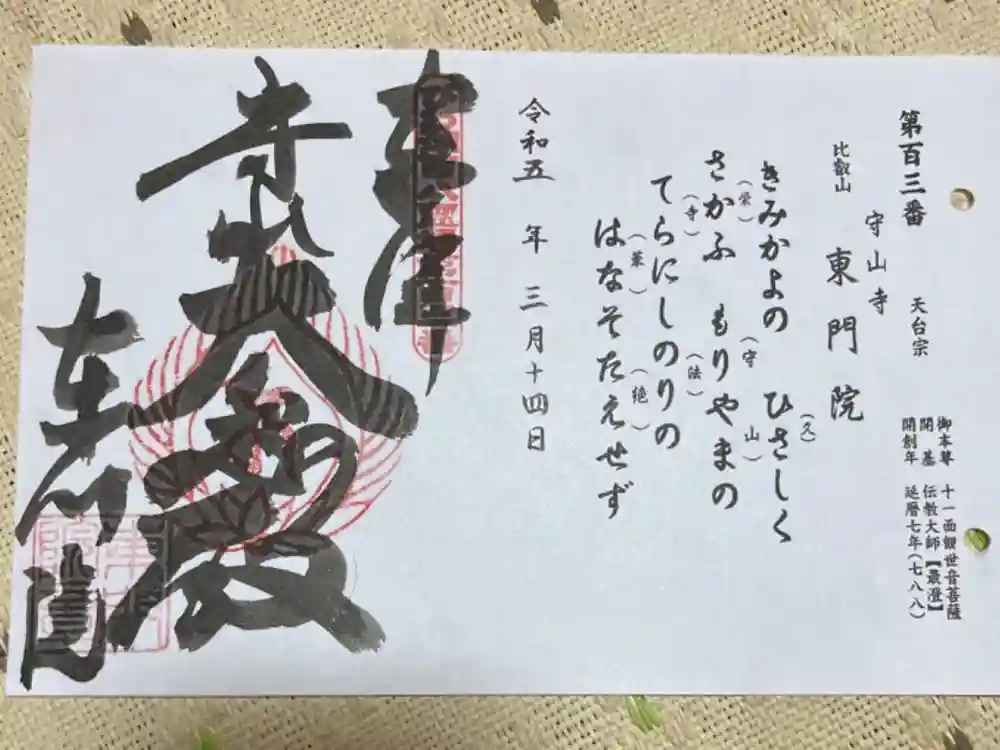 第百三番 天台宗
御本尊 十一面観世音菩薩
開基 伝教大師【最澄】
開創年 延暦七年(七八八)
守山寺
比叡山 東門院
きみかよの ひさしく
(久)
さかふ もりやまの
(栄) (守 山)
てらにしのりの
(寺) (法)
はなそたえせず
(華) (絶)
令和五年 三月十四日
奉拝
大悲殿
東門院